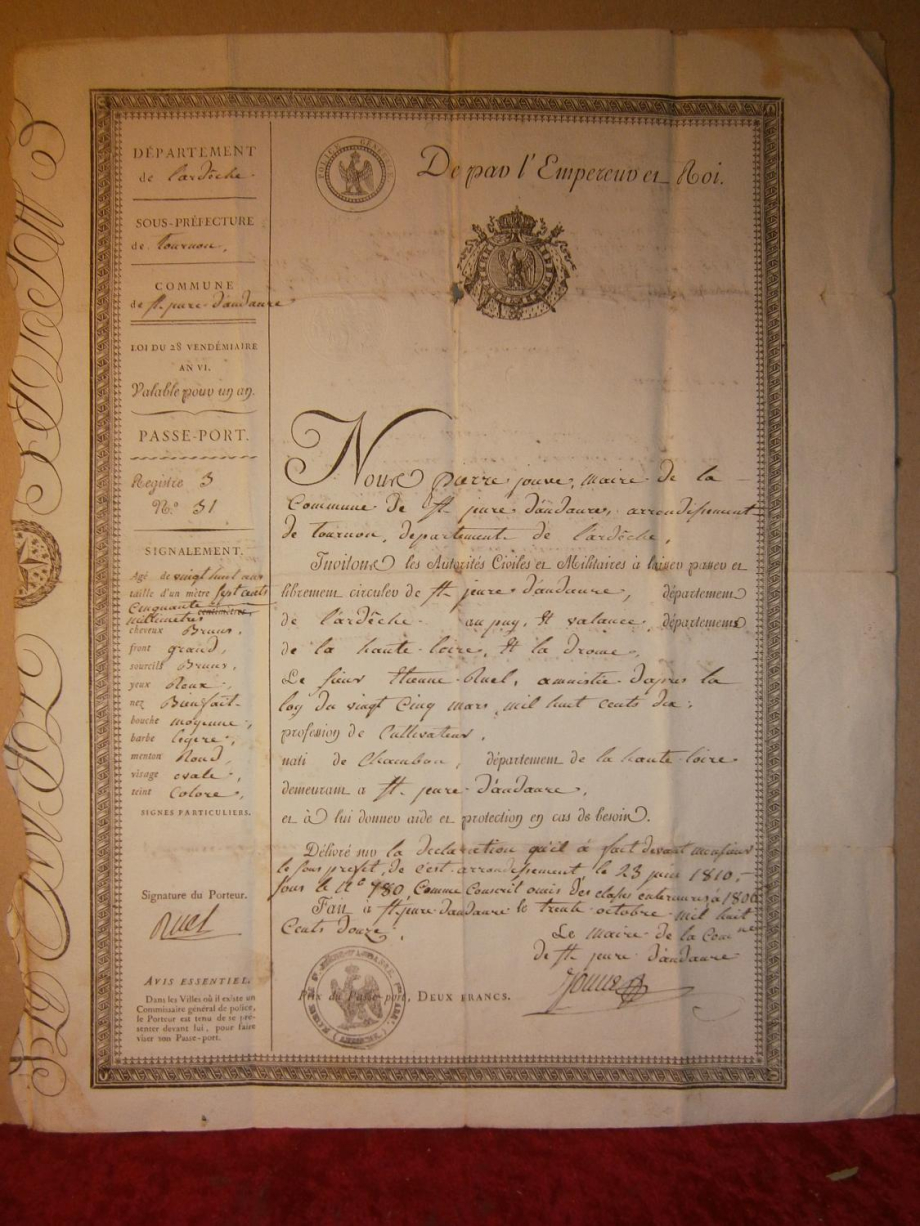 DÉPARTEMENT
de l'ardêche.
SOUS-PRÉFECTURE
de tournon,
COMMUNE
de St. jeure d'andaure
LOI DU 28 VENDÉMIAIRE
AN VI.
Valable pour un an.
PASSE-PORT.
Registre 3
N.º 31
SIGNALEMENT.
Agé de vingt huit ans
taille d'un mètre sept cents
Cinquante centimètres
millimetres
cheveux Bruns,
front grand,
sourcils Bruns,
yeux
nez Bienfait.
bouche moyenne,
barbe legere,
menton Rond,
visage ovale,
teint Coloré,
SIGNES PARTICULIERS.
Signature du Porteur.
Ruel
AVIS ESSENTIEL.
Dans les Villes où il existe un
Commissaire général de police,
le Porteur est tenu de se pré-
senter devant lui, pour faire
viser son Passe-port.
POLICE GÉNÉRALE
De par l'Empereur et Roi.
Nous pierre jouve, maire de la
Commune de St. jeure d'andaure, arrondisement
de tournon, departement de l'ardêche,
Invitons les Autorités Civiles et Militaires à laisser passer et
librement circuler de St. jeure d'andaure, département
de l'ardêche au puy, et valance, département
de la haute loire, et la drome,
Le sieur Etienne Ruel, amnistié d'apres la
loy du vingt Cinq mars, mil huit cents dix,
profession de Cultivateur,
natif de Chambon, département de la haute-loire
demeurant à St. jeure d'andaure,
et à lui donner aide et protection en cas de besoin.
Délivré sur la declaration qu'il à fait devant monsieur
le sous prefet, de c'est arrondisement, le 23 juin 1810,
sous le N.º 180, Comme Conscrit omis des clases enterieures à 1806
Fait à St jeure d'andaure le trente octobre mil huit
Cents douze,
Le maire de la Comune
de St. jeure d'andaure
Prix du Passe-port, DEUX FRANCS.
Jouve